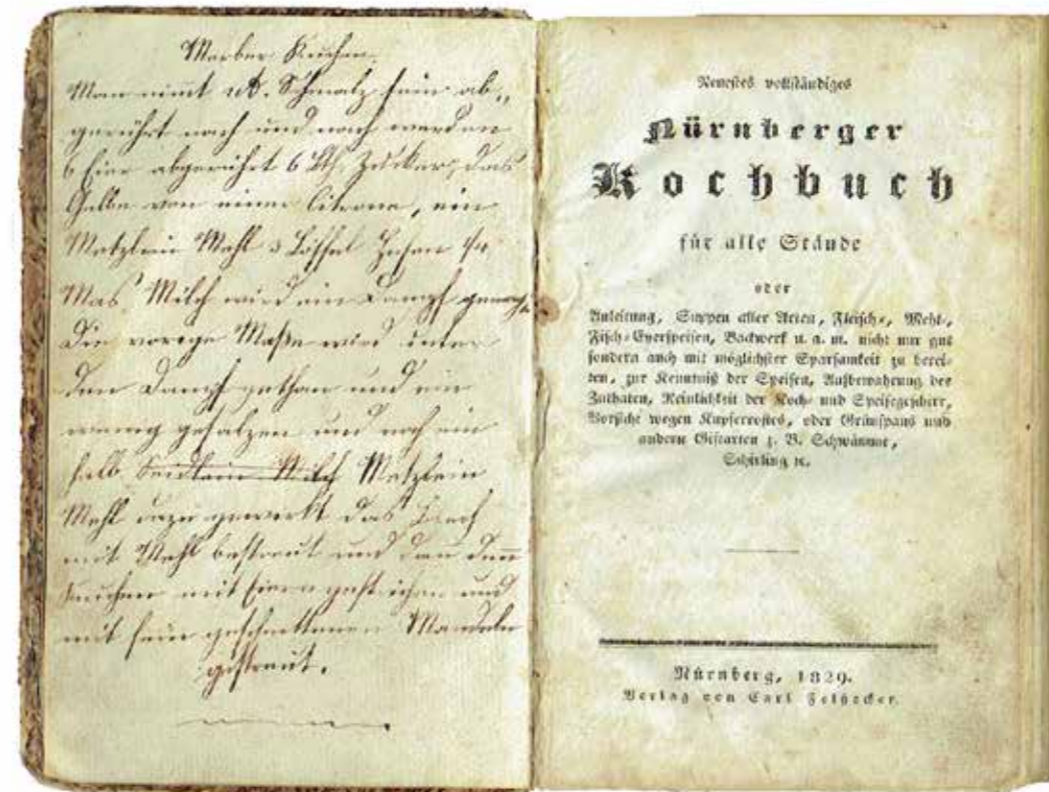 Marber Kuchen.
Man nimmt Schmalz fein ab„
gerührt nach und nach werden
6 Eier abgerührt 6 Lth. Zucker, das
Gelbe von einer Citrone, ein
Metzlein Mehl 3 Löffel Hefen
Mas Milch wird ein Dampf
Die vorige Maße wird unter
den Dampf gethan und ein
wenig gesalzen und noch ein
halb Seidlein Milch Metzlein
Mehl dazu gewerkt das Blech
mit Mehl bestreut und dan den̅
Kuchen mit Eiern gestrichen und
mit fein geschnittenen Mandeln
gestreut.
Neuestes vollständiges
Nürnberger
Kochbuch
für alle Stände
oder
Anleitung, Suppen aller Arten, Fleisch-, Mehl-,
Fisch- Eyerspeisen, Backwerk u. a. m. nicht nur gut
sondern auch mit möglichster Sparsamkeit zu berei-
ten, zur Kenntniß der Speisen, Aufbewahrung der
Zuthaten, Reinlichkeit der Koch- und Speisegeschirr,
Vorsicht wegen Kupferrostes, oder Grünspans und
andern Giftarten z. B. Schwämme,
Schirling ꝛc.
Nürnberg, 1829.
Verlag von Carl Felßecker.